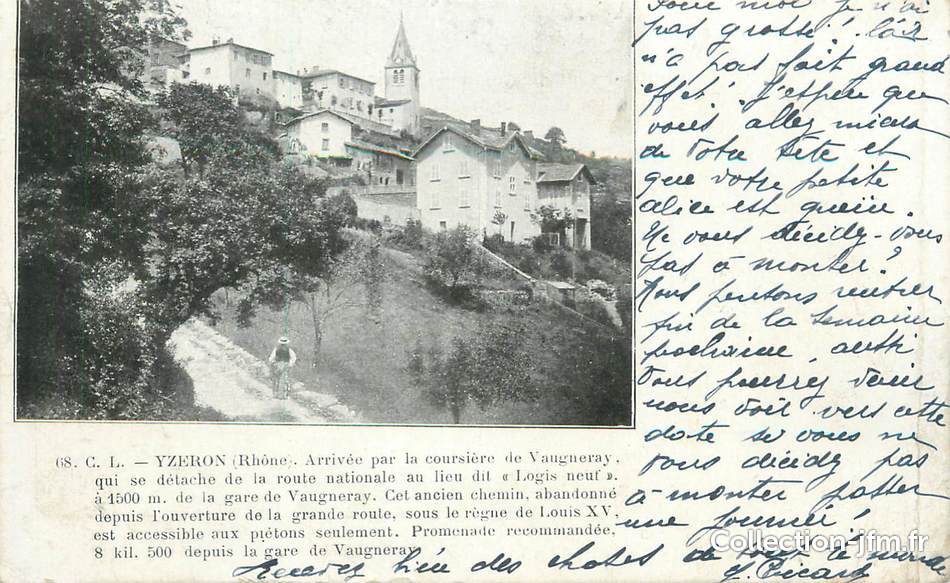 Pour moi je n'ai
pas grossi ! l'air
n'a pas fait grand
effet ! J'espère que
vous allez mieux
de votre tête et
que votre petite
alice est guérie.
Ne vous décidez-vous
pas à monter ?
Nous pensons rentrer
fin de la semaine
prochaine, aussi
vous pourrez venir
nous voir vers cette
date si vous ne
vous décidez pas
à monter passer
une journée !
Recevez bien des choses de tout le
Picard
68. C. L. — YZERON (Rhône). Arrivée par la coursière de Vaugneray,
qui se détache de la route nationale au lieu dit « Logis neuf ».
à 1500 m. de la gare de Vaugneray. Cet ancien chemin, abandonné
depuis l'ouverture de la grande route, sous le règne de Louis XV,
est accessible aux piétons seulement. Promenade recommandée,
8 kil. 500 depuis la gare de Vaugneray
Collection-jfm.fr